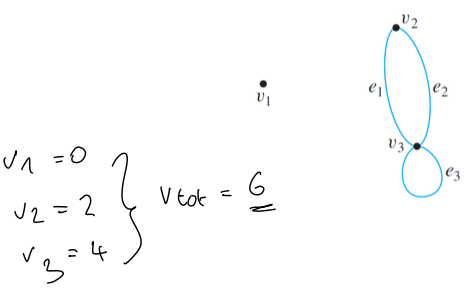 v₂
e₁ e₂
v₁
v₃
e₃
v₁ = 0
v₂ = 2
v₃ = 4
vtot = 6